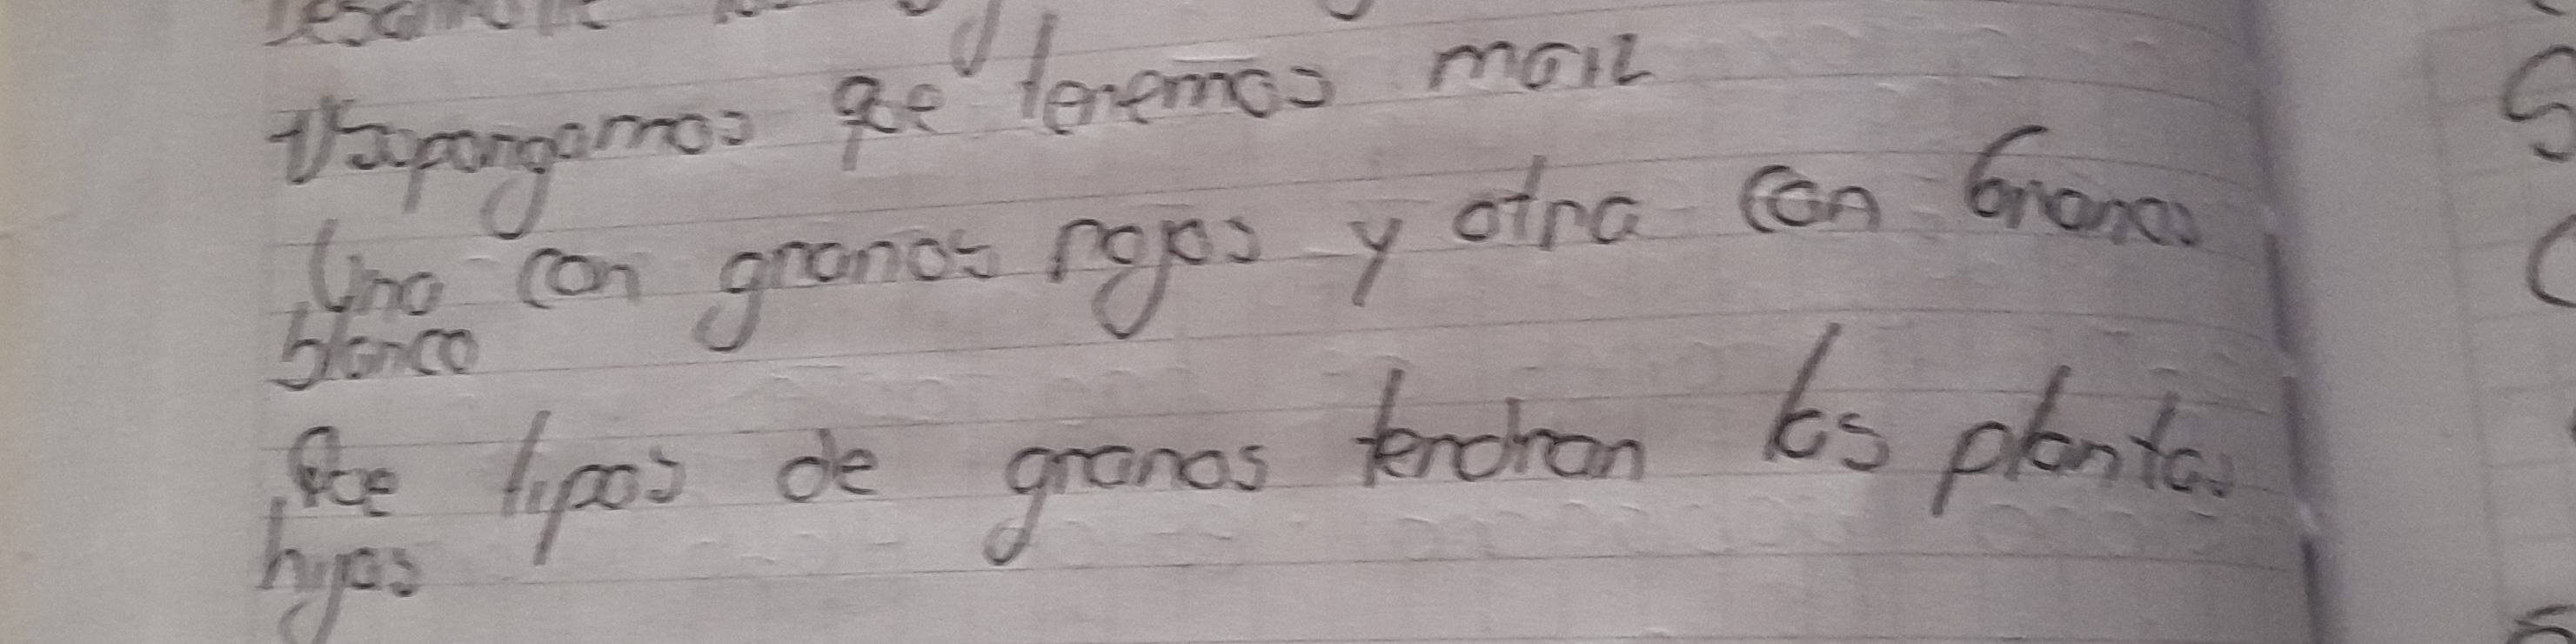 1/supongamos que tenemos maiz
Una con granos rojos y otra con Granos
blanco
Que tipos de granos tendran las plantas
hijas